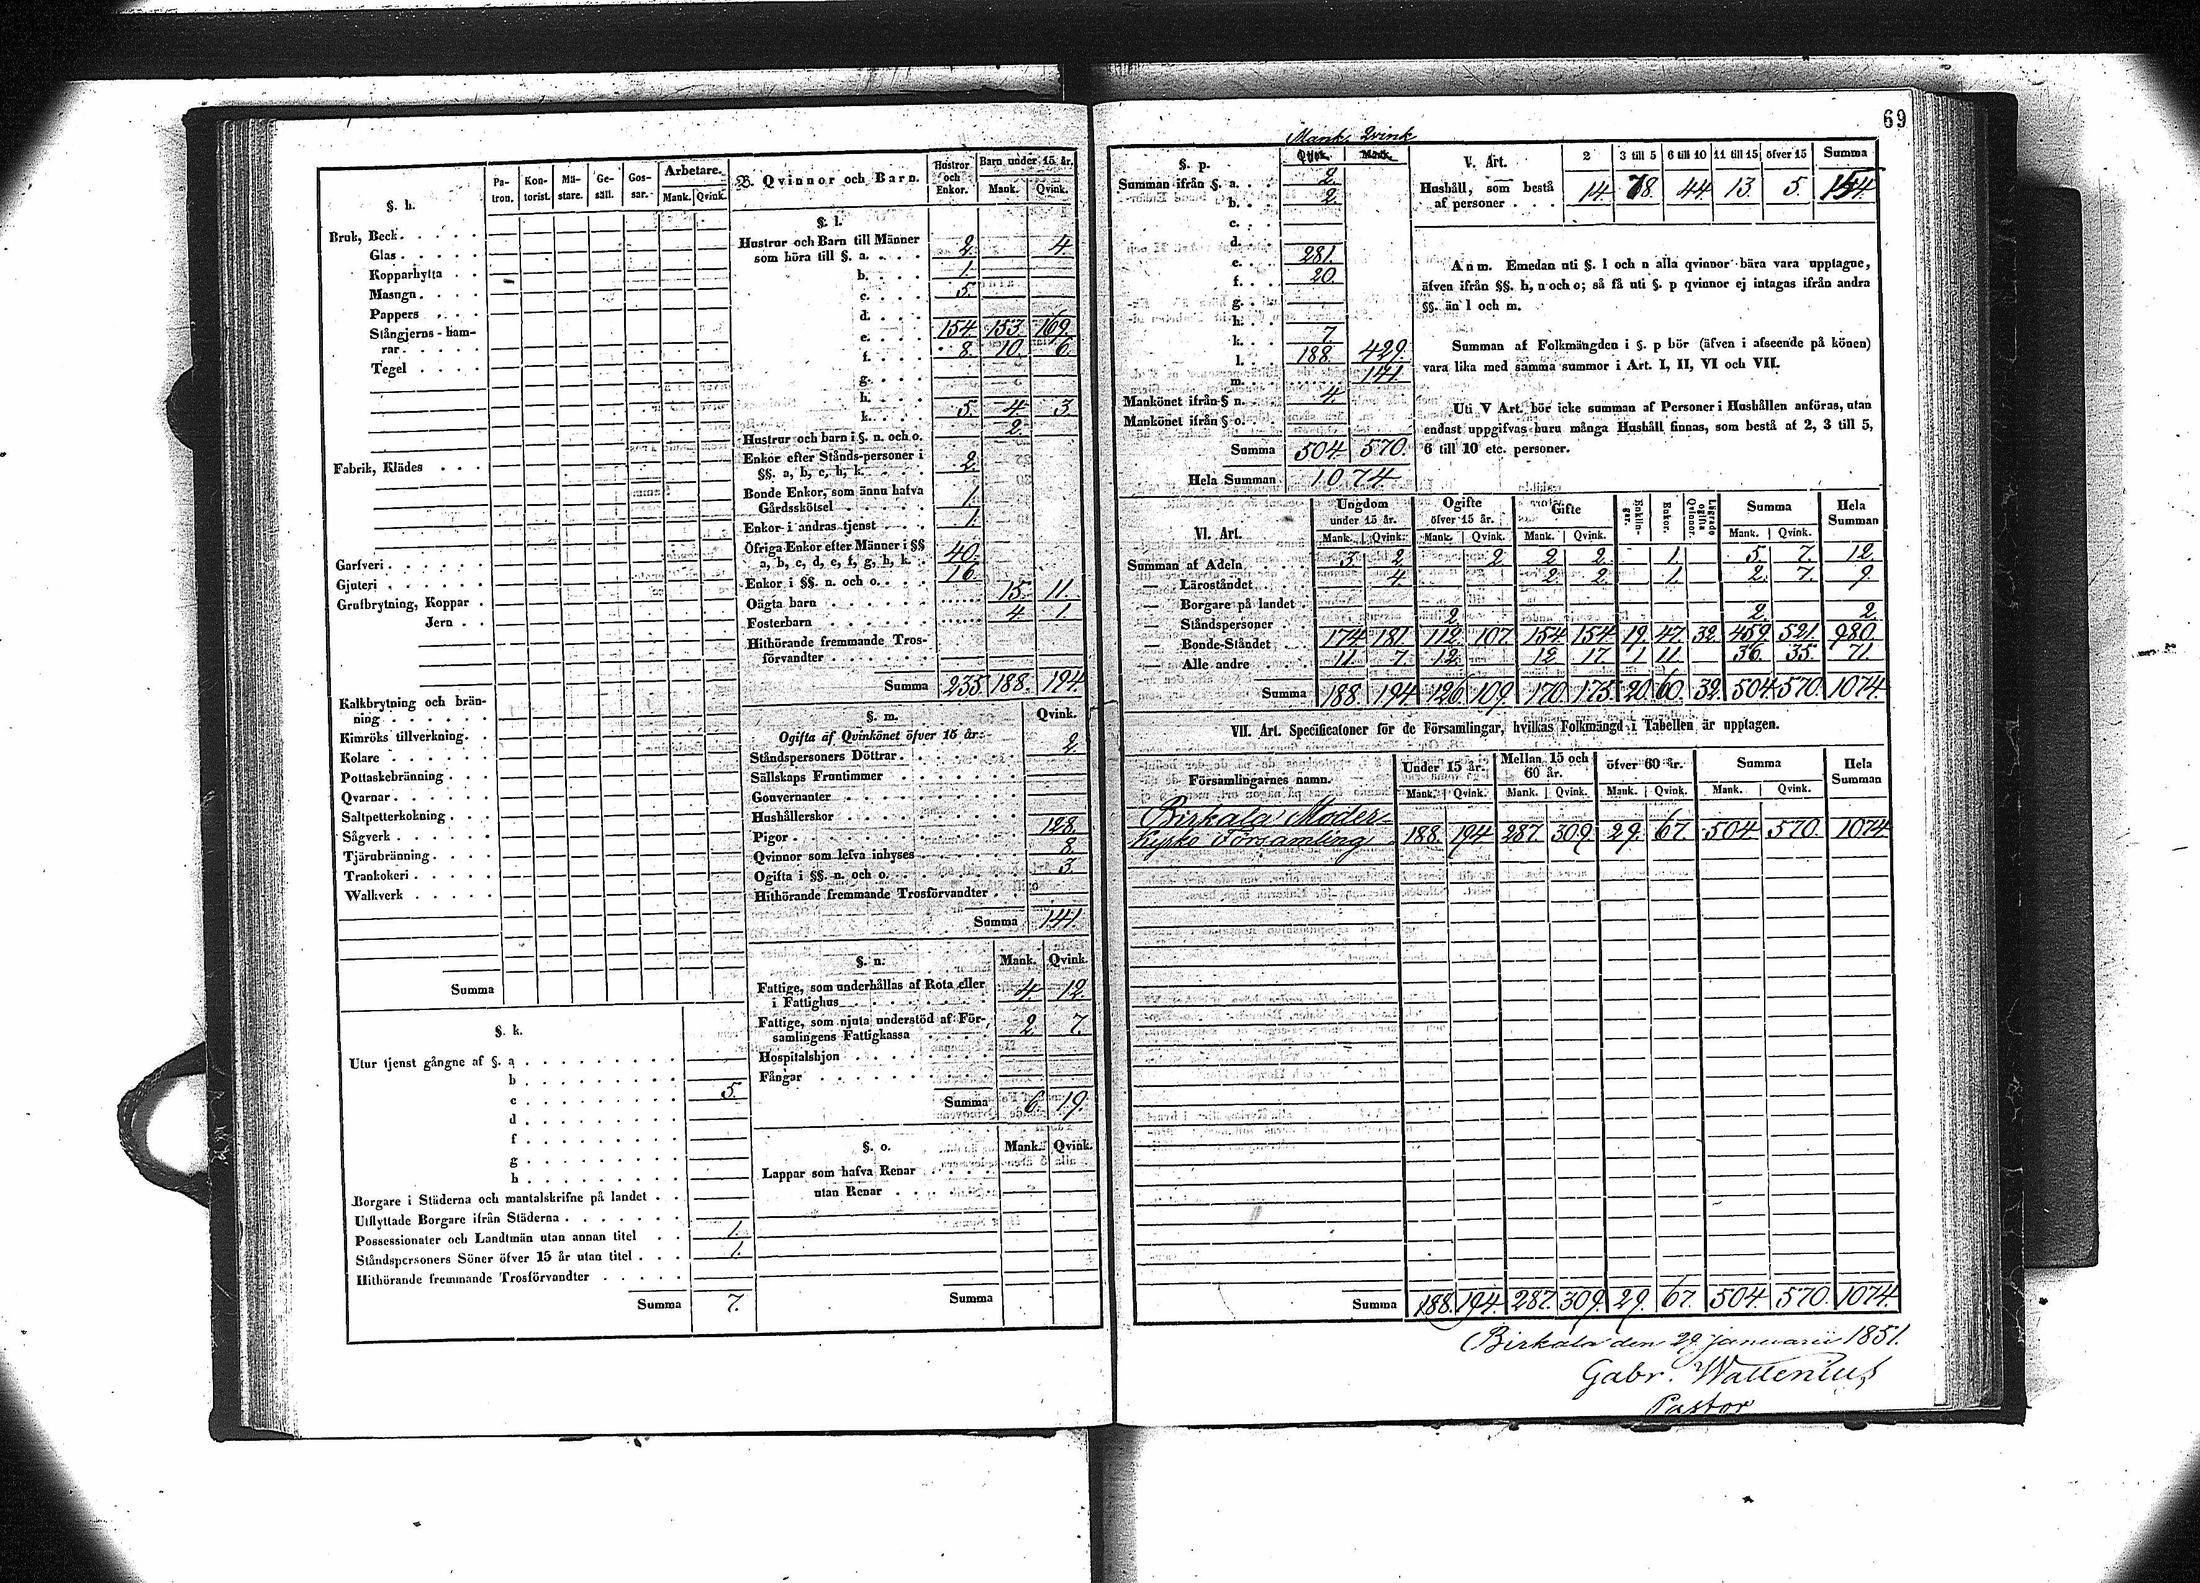 69
§. h.
Patron. Kontorist. Mästare. Gesäll. Gossar. Arbetare. Mank. Qvink.
Bruk, Beck
Glas
Kopparhytta
Masugn
Pappers
Stångjerns-hamrar
Tegel
Fabrik, Klädes
Garfveri
Gjuteri
Grufbrytning, Koppar
Jern
Kalkbrytning och bränning
Kimröks tillverkning
Kolare
Pottaskebränning
Qvarnar
Saltpetterkokning
Sågverk
Tjärubränning
Trankokeri
Walkverk
Summa
§. k.
Utur tjenst gångne af §. a
b
c 5.
d
f
g
h
Borgare i Städerna och mantalskrifne på landet
Utflyttade Borgare ifrån Städerna
Possessionater och Landtmän utan annan titel 1.
Ståndspersoners Söner öfver 15 år utan titel 1.
Hithörande fremmande Trosförvandter
Summa 7.
B. Qvinnor och Barn. Hustrur och Enkor. Barn under 15 år. Mank. Qvink.
§. l.
Hustrur och Barn till Männer
som höra till §. a. 2. 4.
b. 1.
c. 5.
d.
e. 154. 153. 169.
f. 8. 10. 6.
g.
h.
k. 5. 4. 3.
Hustrur och barn i §. n. och o. 2.
Enkor efter Stånds-personer i
§§. a, b, c, h, k. 2.
Bonde Enkor, som ännu hafva
Gårdsskötsel 1.
Enkor i andras tjenst 1.
Öfriga Enkor efter Männer i §§
a, b, c, d, e, f, g, h, k. 40.
Enkor i §§. n. och o. 16.
Oägta barn 15. 11.
Fosterbarn 4. 1.
Hithörande fremmande Trosförvandter
Summa 235. 188. 194.
§. m. Qvink.
Ogifta af Qvinkönet öfver 15 år:
Ståndspersoners Döttrar 2.
Sällskaps Fruntimmer
Gouvernanter
Hushållerskor
Pigor 128.
Qvinnor som lefva inhyses 8.
Ogifta i §§. n. och o. 3.
Hithörande fremmande Trosförvandter
Summa 141.
§. n. Mank. Qvink.
Fattige, som underhållas af Rota eller
i Fattighus 4. 12.
Fattige, som njuta understöd af Församlingens Fattigkassa 2. 7.
Hospitalshjon
Fångar
Summa 6. 19.
§. o. Mank. Qvink.
Lappar som hafva Renar
utan Renar
Summa
Mank. Qvink
§. p. Qvink. Mank.
Summan ifrån §. a. 2.
b. 2.
c.
d.
e. 281.
f. 20.
g.
h.
k. 7.
l. 188. 429.
m. 141.
Mankönet ifrån § n. 4.
Mankönet ifrån § o.
Summa 504. 570.
Hela Summan 1074
V. Art. 2 3 till 5 6 till 10 11 till 15 öfver 15 Summa
Hushåll, som bestå
af personer 14. 78. 44. 13. 5. 154.
Anm. Emedan uti §. l och n alla qvinnor bära vara upptagne,
äfven ifrån §§. h, n och o; så få uti §. p qvinnor ej intagas ifrån andra
§§. än l och m.
Summan af Folkmängden i §. p bör (äfven i afseende på könen)
vara lika med samma summor i Art. I, II, VI och VII.
Uti V Art. bör icke summan af Personer i Hushållen anföras, utan
endast uppgifvas huru många Hushåll finnas, som bestå af 2, 3 till 5,
6 till 10 etc. personer.
VI. Art. Ungdom under 15 år. Ogifte öfver 15 år. Gifte Enklingar. Enkor. Lägrade ogifta Qvinnor. Summa Hela Summan
Mank. Qvink. Mank. Qvink. Mank. Qvink. Mank. Qvink.
Summan af Adeln 3. 2. 2. 2. 2. 1. 5. 7. 12.
— Läroståndet 4. 2. 2. 1. 2. 7. 9.
— Borgare på landet
— Ståndspersoner 2. 2. 2.
— Bonde-Ståndet 174. 181. 112. 107. 154. 154. 19. 47. 32. 459. 521. 980.
— Alle andre 11. 7. 12. 12. 17. 1. 11. 36. 35. 71.
Summa 188. 194. 126. 109. 170. 175. 20. 60. 32. 504. 570. 1074.
VII. Art. Specificatoner för de Församlingar, hvilkas Folkmängd i Tabellen är upptagen.
Församlingarnes namn. Under 15 år. Mellan 15 och 60 år. öfver 60 år. Summa Hela Summan
Mank. Qvink. Mank. Qvink. Mank. Qvink. Mank. Qvink.
Birkala Moder-
Kyrko Församling 188. 194. 287. 309. 29. 67. 504. 570. 1074
Summa 188. 194. 287. 309. 29. 67. 504. 570. 1074.
Birkala den 29 januarii 1851.
Gabr. Wallenius
Pastor